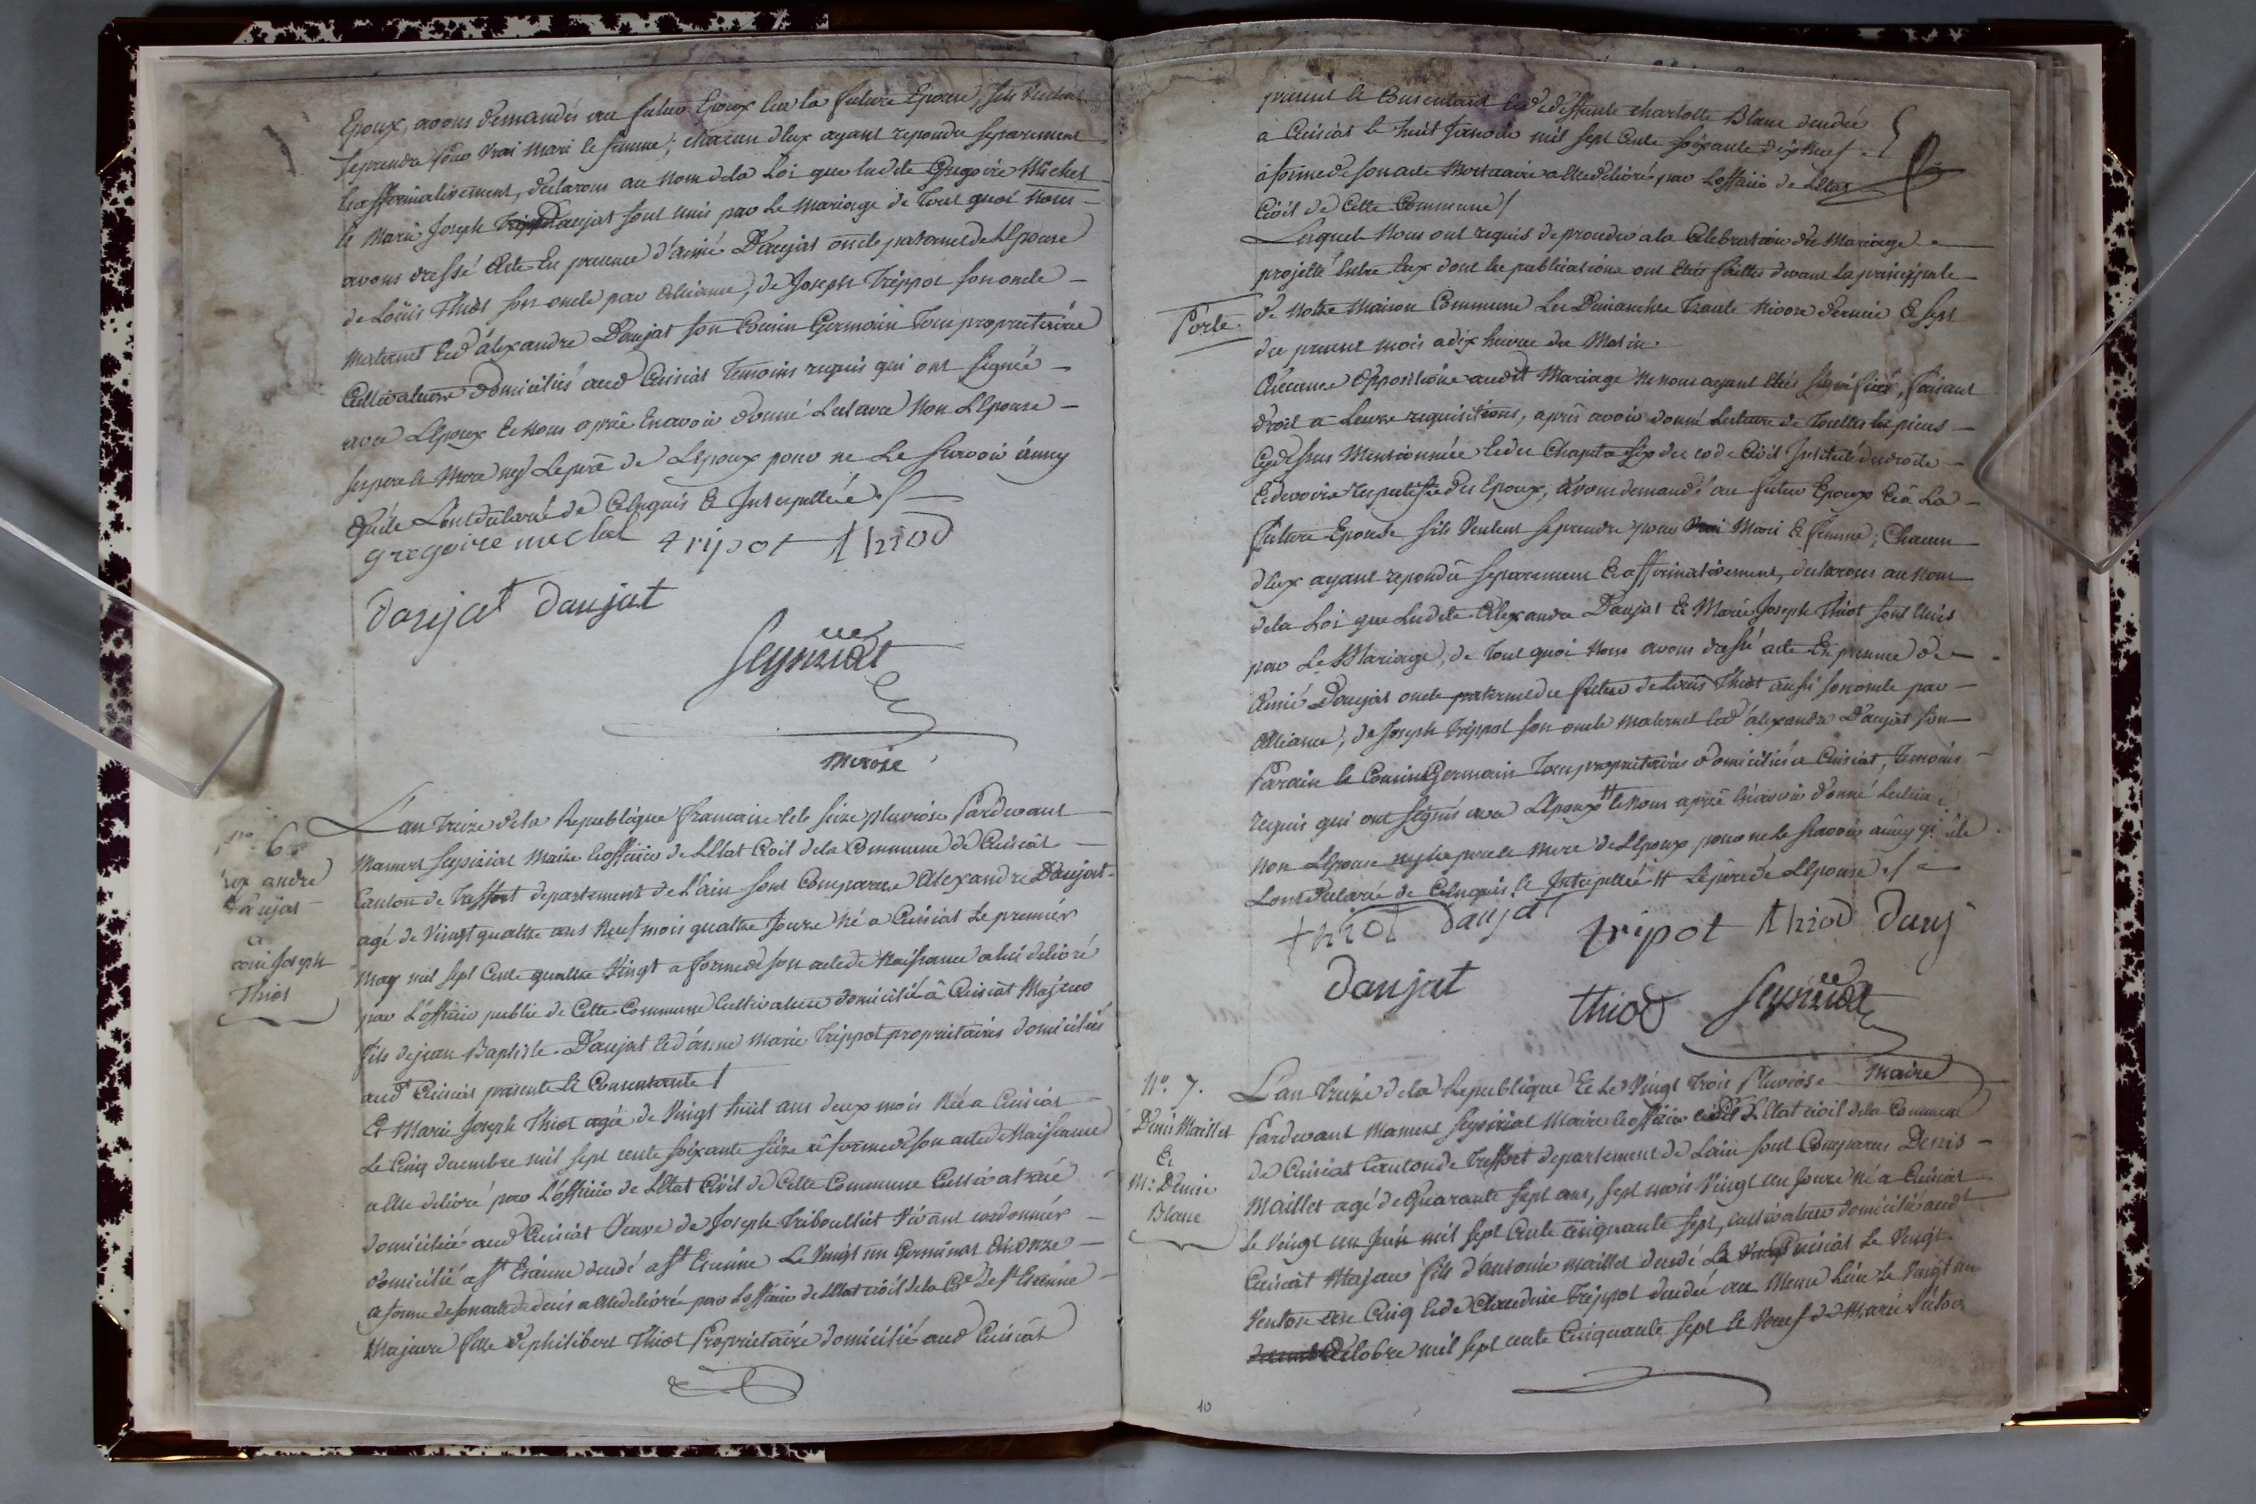 Epoux, avons demandés au futur Epoux Et a la future Epouse, sils veulent
se prendre pour vrai mari Et femme; chacun d'Eux ayant repondu separement
Et affirmativement, declarons au nom de la Loi que ledit Gregoire Michel
Et Marie Joseph Daujat sont unis par Le mariage de Tout quoi nous
avons dressé Acte En presence d'aimé Daujat oncle paternel de L'Epouse
de Loüis Thiot son oncle par alliance, de Joseph Trippot son oncle
maternel Et d'alexandre Daujat son Cousin Germain Tous proprietaires
Cultivateurs domiciliés aud Cuisiat Temoins requis qui ont signés
avec L'Epoux Et nous après En avoir donné Lecture Non L'Epouse
ses pere Et Mere ny Le pere de L'Epoux pour ne Le Scavoir ainsy
qu'ils L'ont declaré de ce Enquis Et Interpellée ./.
gregoire michel tripot thiod
daujat daujat
Seyssiriat
maire
n° 6
alex andre
Daujat
Et
marie Joseph
Thiot
L'an Treize de la Republique francaise Et le seize pluviose Pardevant
Mamert Seyssiriat Maire Et officier de L'Etat Civil de la Commune de Cuisiat
Canton de Treffort departement de L'ain sont Comparus Alexandre Daujat
agé de vingt quatre ans Neuf mois quatre Jours Né a Cuisiat Le premier
may mil sept Cent quatre vingt a forme de son acte de Naissance a lui delivré
par L'officier public de Cette Commune Cultivateur domicilié à Cuisiat Majeur
fils de jean Baptiste Daujat Et d'anne Marie Trippot proprietaires domiciliés
aud Cuisiat presents Et Consentants /
Et Marie Joseph Thiot agée de vingt huit ans deux mois Née a Cuisiat
Le Cinq decembre mil sept cent soixante seize a forme de son acte de Naissance
a elle delivré par L'officier de L'Etat Civil de Cette Commune Cultivatrice
domiciliée aud Cuisiat Veuve de Joseph Triboullet vivant cordonnier
domicilié a St Etienne decedé a St Etienne Le vingt un Germinal an onze
a forme de son acte de decès a elle delivré par L'officier de L'Etat civil de la Cne de St Etienne
Majeure fille de philibert Thiot Proprietaire domicilié aud Cuisiat
present Et Consentant Et de deffunte charlotte Blanc decedée
a Cuisiat le huit Janvier mil sept Cent soixante dix Neuf
a forme de son acte Mortuaire a elle delivré par L'officier de L'Etat
Civil de Cette Commune /
Lesquels Nous ont requis de proceder a la Celebration du Mariage
projetté Entre Eux dont les publications ont Etés faittes devant La principale
Porte
de Notre Maison Commune Les Dimanches Trente Nivose dernier Et sept
du present mois a dix heures du Matin.
Aucune Opposition audit Mariage Ne nous ayant Etés Signifiée, faisant
droit a Leurs requisitions, après avoir donné Lecture de Touttes les pieces
Cy dessus Mentionnées Et du Chapitre Six du code Civil Intitulé des droits
Et devoirs respectifs des Epoux, Avons demandé au futur Epoux Et a La
future Epouse sils Veulent se prendre pour Mari Et femme; Chacun
d'Eux ayant repondu separement Et affirmativement, declarons au Nom
de la Loi que Ledit Alexandre Daujat Et Marie Joseph Thiot sont Unis
par Le Mariage, de Tout quoi Nous avons dressé acte En presence de
Aimé Daujat oncle paternel du futur de Louis Thiot aussi son oncle par
Alliance, de Joseph Trippot son oncle maternel Et d'alexandre Daujat son
Parain Et Cousin Germain Tous proprietaires domiciliés a Cuisiat, Temoins
requis qui ont Signés avec L'Epoux # Et nous après En avoir donné Lecture
Non L'Epouse ny Les pere Et mere de L'Epoux pour ne Le Scavoir ainsy qu'ils
L'ont declaré de Ce Enquis Et Interpellée # Le père de L'Epouse ./.
thiot daujat tripot thiod dauj
daujat thiod Seyssiriat
maire
N° 7.
Denis Maillet
Et
Me Denise
Blanc
L'an Treize de la Republique Et Le vingt Trois Pluviose
Pardevant Mamert Seyssiriat Maire Et officier de L'Etat civil de la Commune
de Cuisiat Canton de Treffort departement de L'ain sont Comparus Denis
Maillet agé de Quarante sept ans, sept mois vingt un Jours Né a Cuisiat
Le vingt un Juin mil sept Cent Cinquante sept, cultivateur domicilié aud
Cuisiat Majeur fils d'antoine Maillet decedé a Cuisiat Le vingt
Ventose an Cinq Et de Claudine Trippot decedée au Meme Lieu Le vingt un
Octobre mil sept cent Cinquante sept Et Veuf de Marie
10